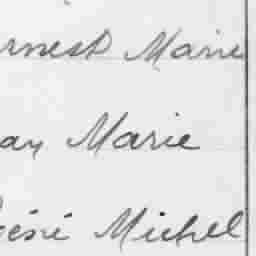 rnest Marie
ay Marie
ésré Michel